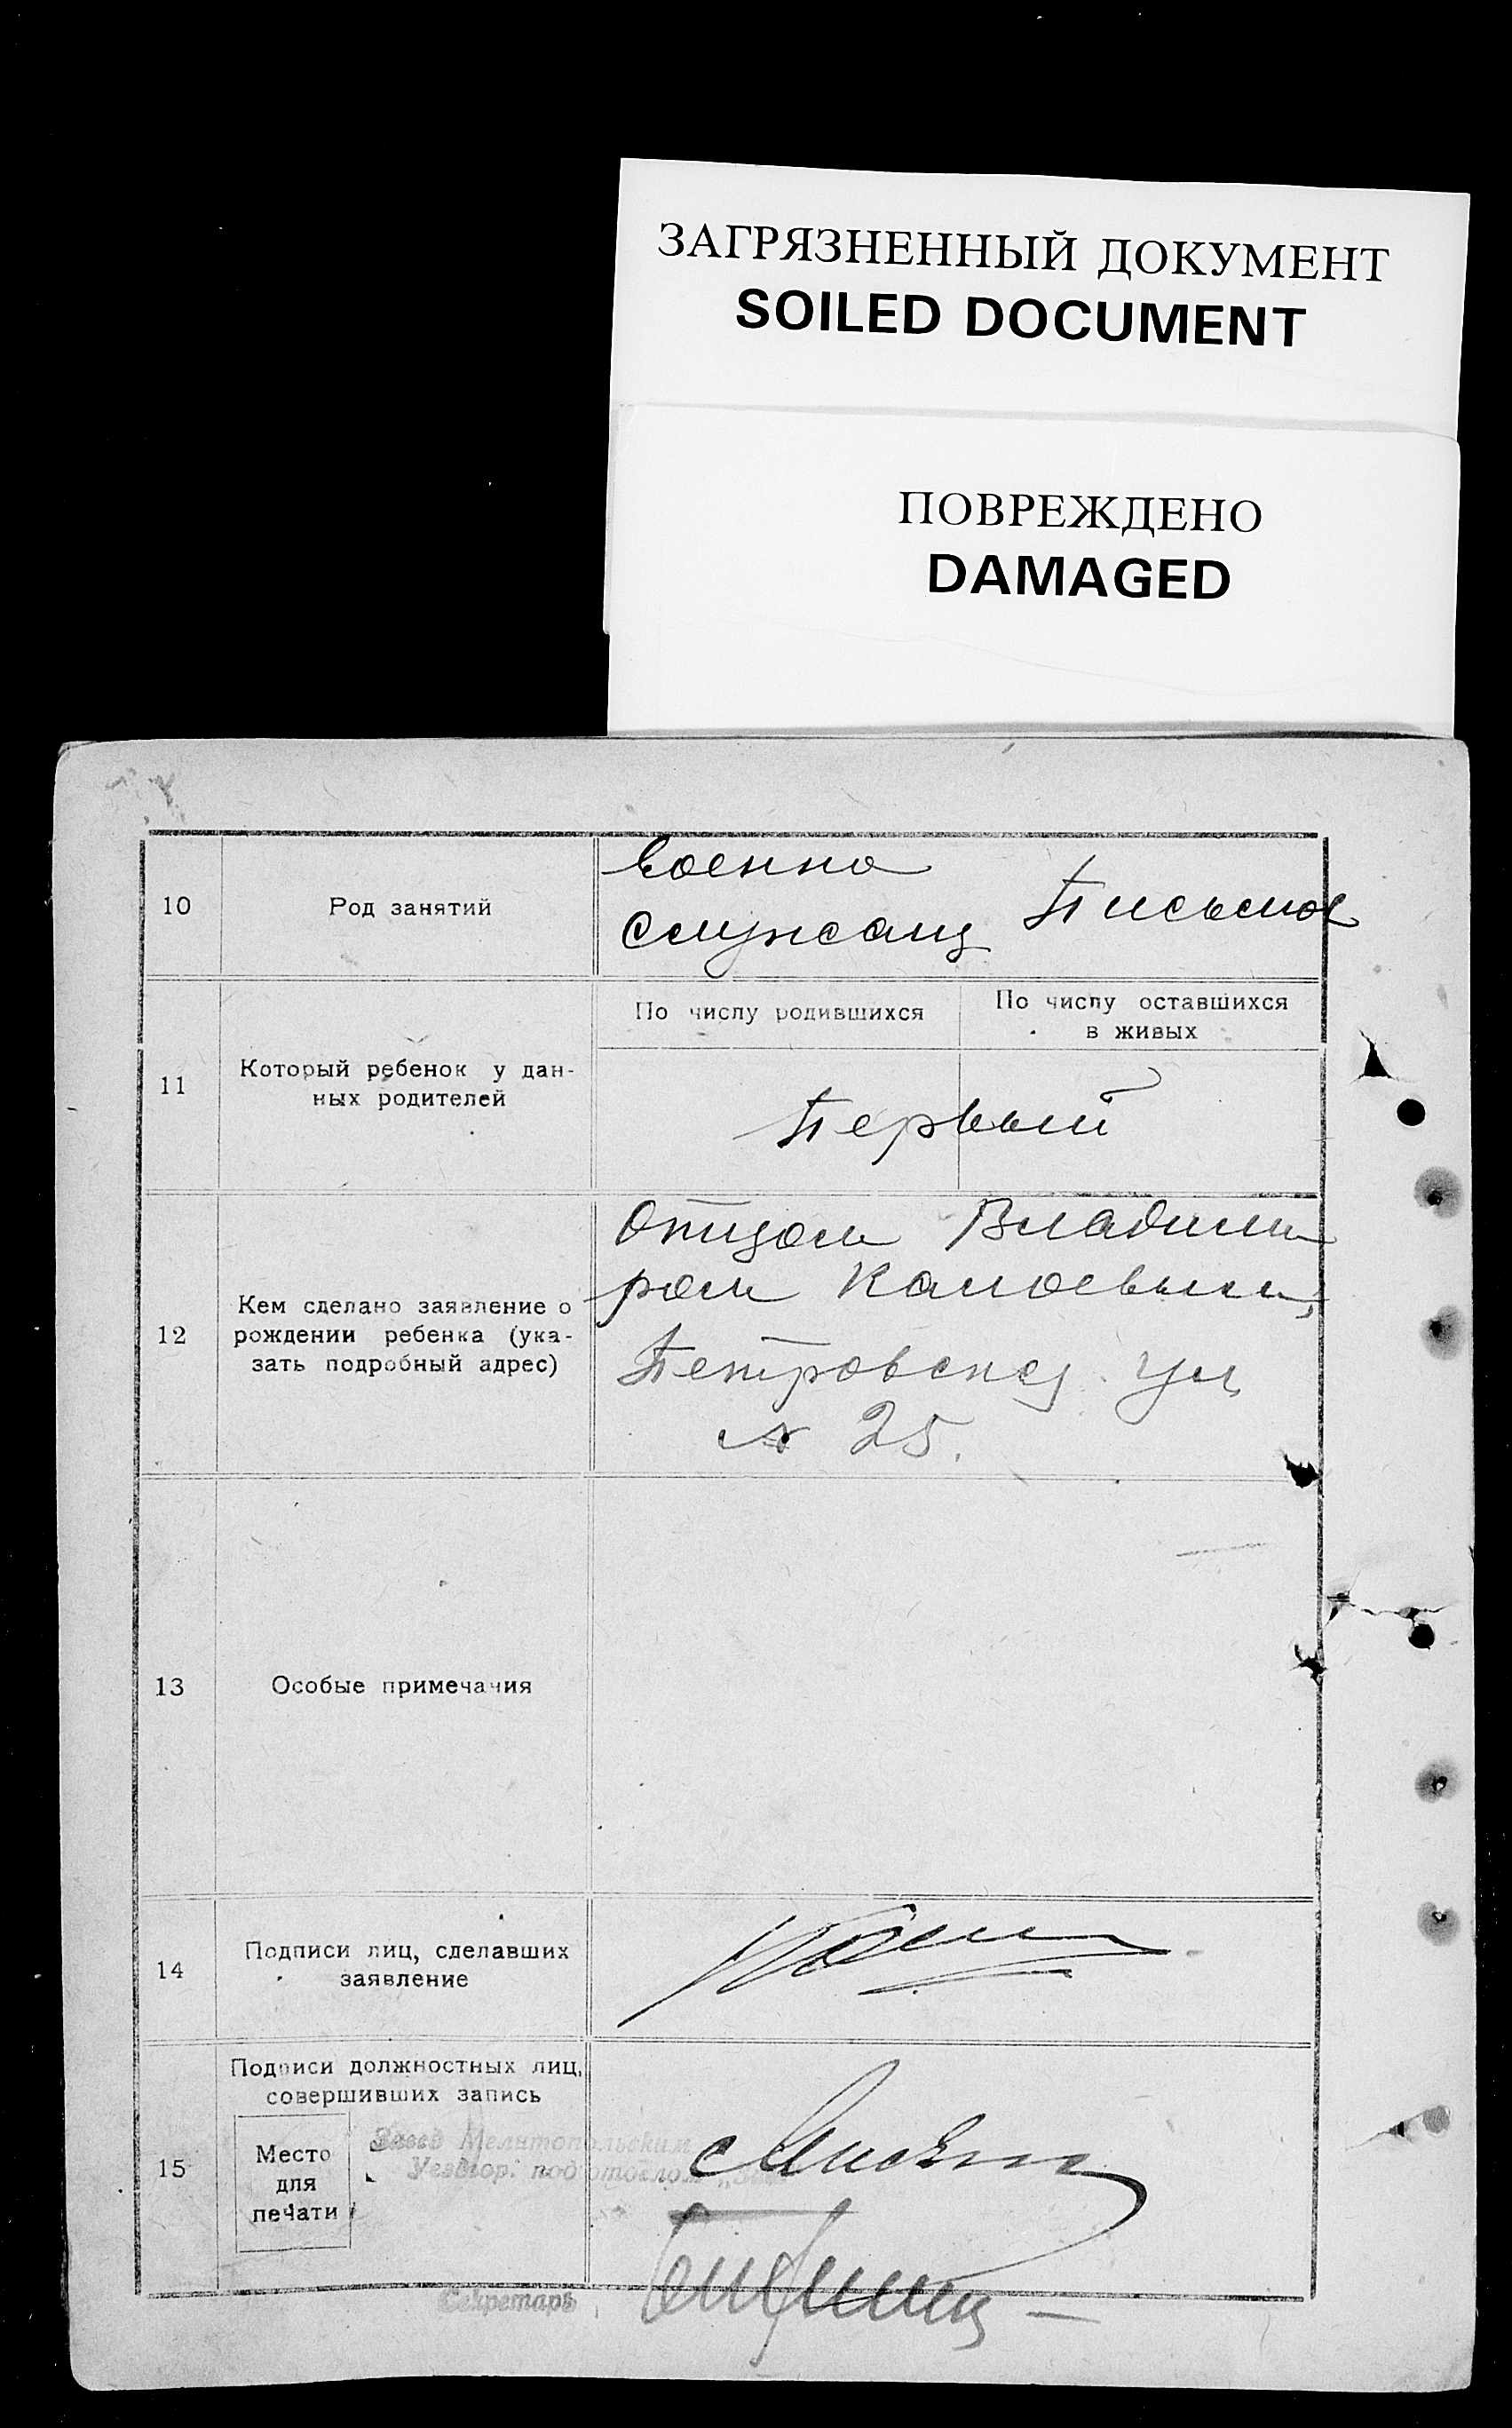 ЗАГРЯЗНЕННЫЙ ДОКУМЕНТ
SOILED DOCUMENT
ПОВРЕЖДЕНО
DAMAGED
10
Род занятий
Военно
служащ
Письмов
11
Который ребенок у дан-
ных родителей
По числу родившихся
По числу оставшихся
в живых
Первый
12
Кем сделано заявление о
рождении ребенка (ука-
зать подробный адрес)
Отцом Владими
ром
Петровская ул
№ 25.
13
Особые примечания
14
Подписи лиц, сделавших
заявление
15
Подписи должностных лиц,
совершивших запись
Место
для
печати
Завед Мелитопольским
подотделом
Секретарь